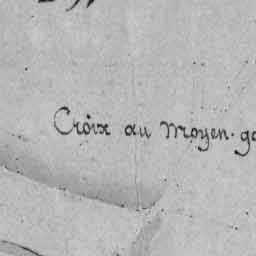 Croix au Moyen. ga